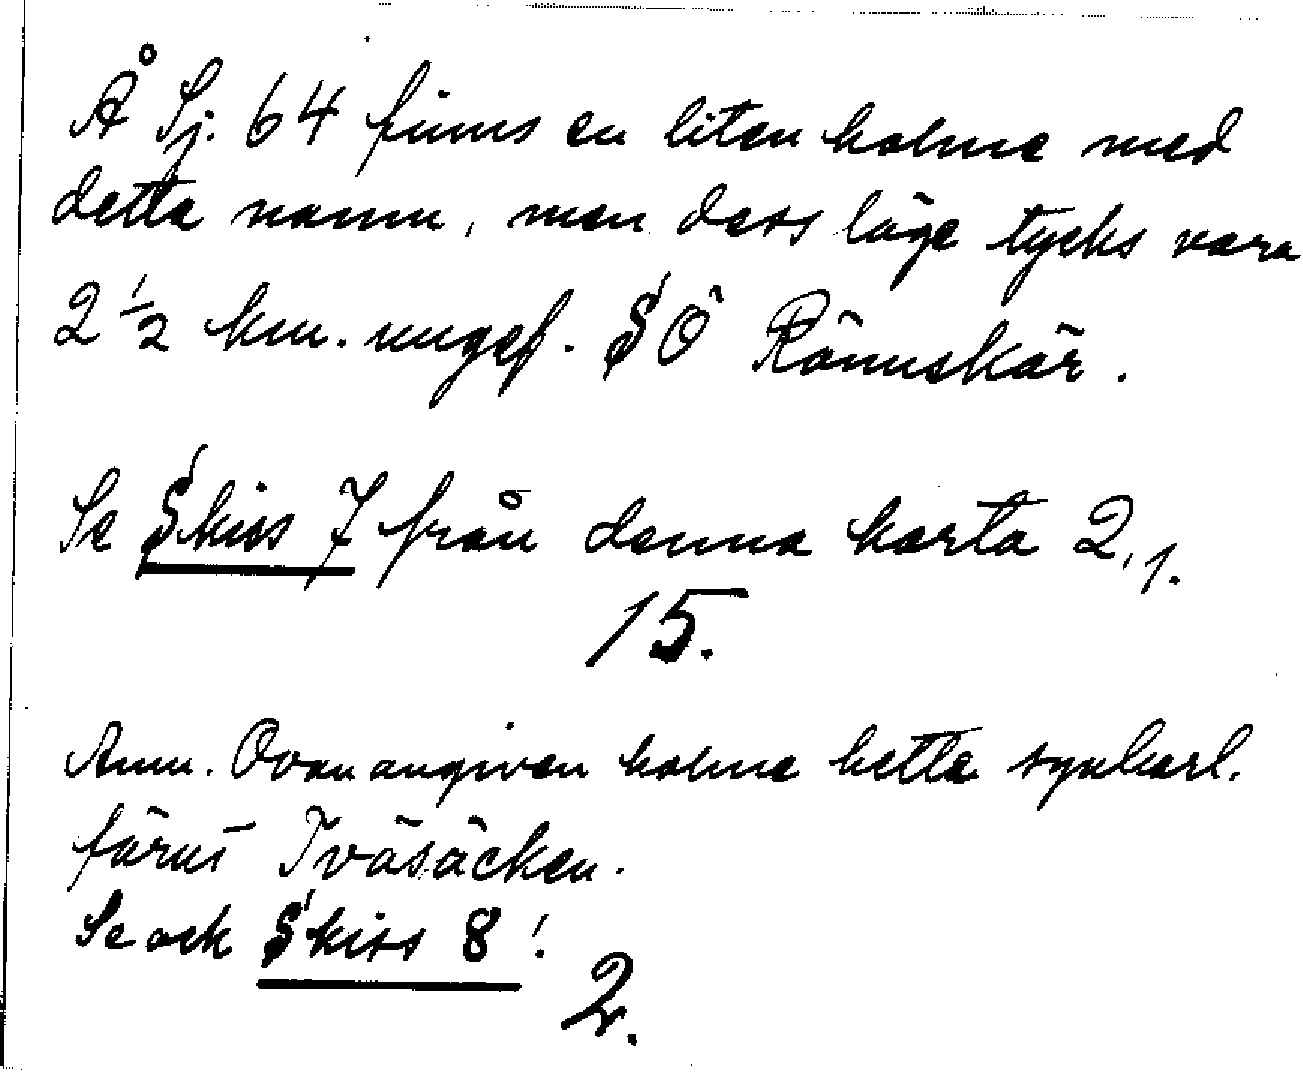 Å Sj. 64 finns en liten holme med
detta namn, men dess läge tycks vara
2 1/2 km. ungef. SÖ Rönnskär.
Se Skiss 7 från denna karta 2,1.
15.
Anm. Ovanangiven holme hette synbarl.
förut Tväsäcken.
Se ock Skiss 8!
2.